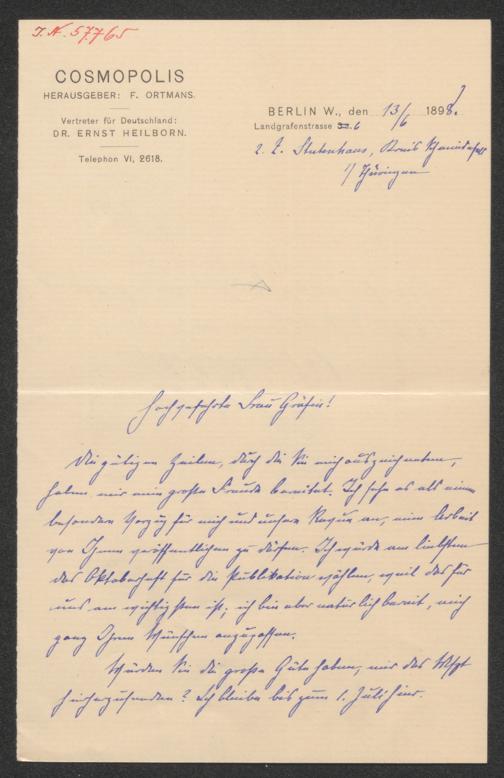 I. N. 57.765
COSMOPOLIS
HERAUSGEBER: F. ORTMANS.
Vertreter für Deutschland:
DR. ERNST HEILBORN.
Telephon VI, 2618.
BERLIN W., den 13/6 1898.
Landgrafenstrasse 6
z. Z. Stutenhaus, Kreis Schleusingen
i/ Thüringen
Hochgeehrte Frau Gräfin!
Die gütigen Zeilen, durch die Sie mich auszeichneten,
haben mir eine große Freude bereitet. Ich sehe es als einen
besondern Vorzug für mich und unsere Revue an, eine Arbeit
von Ihnen veröffentlichen zu dürfen. Ich würde am liebsten
das Oktoberheft für die Publikation wählen, weil das für
uns am wichtigsten ist; ich bin aber natürlich bereit, mich
ganz Ihren Wünschen anzupassen.
Würden Sie die große Güte haben, mir das Mspt
hierherzusenden? Ich bleibe bis zum 1. Juli hier.